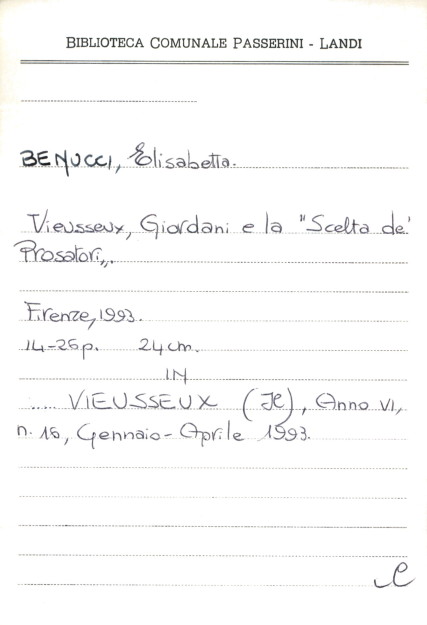 BIBLIOTECA COMUNALE PASSERINI - LANDI
BENUCCI, Elisabetta.
Vieusseux, Giordani e la "Scelta de'
Prosatori„.
Firenze, 1993.
14-26 p. 24 cm.
IN
..... VIEUSSEUX (Il), Anno VI,
n. 16, Gennaio-Aprile 1993.